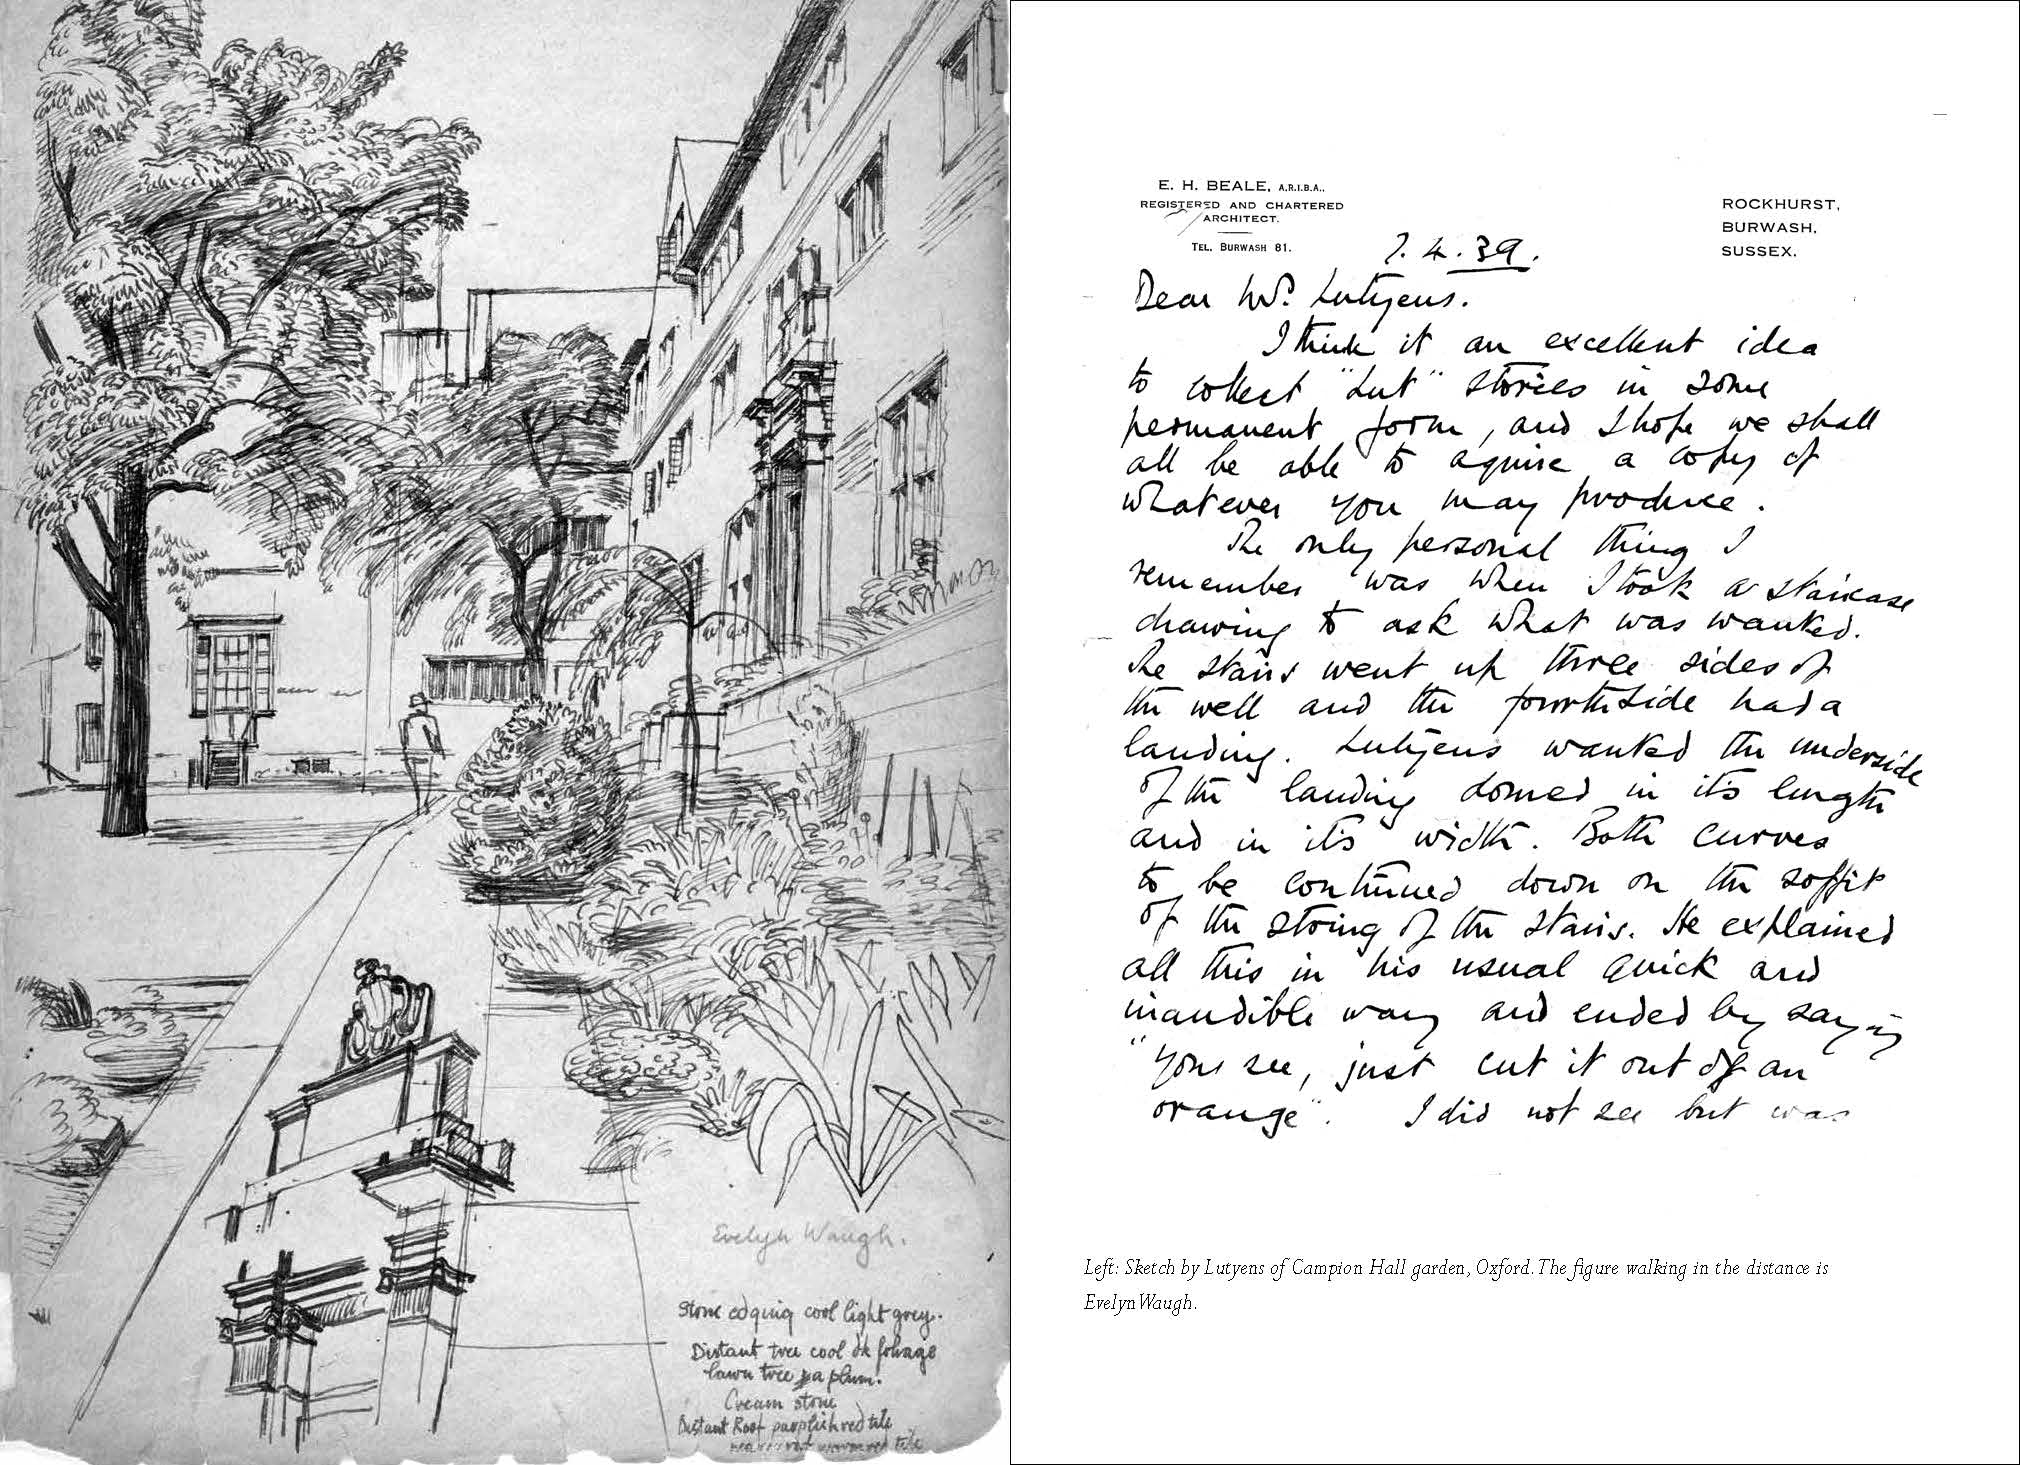 Evelyn Waugh.
Stone edging cool light grey.
Distant tree cool dk foliage
lawn tree a plum.
Cream stone
Distant Roof purplish red tile
tile
E. H. BEALE, A.R.I.B.A.,
REGISTERED AND CHARTERED
ARCHITECT.
TEL. BURWASH 81.
ROCKHURST,
BURWASH,
SUSSEX.
7.4.39.
Dear Mr. Lutyens.
I think it an excellent idea
to collect "Lut" stories in some
permanent form, and I hope we shall
all be able to aquire a copy of
whatever you may produce.
The only personal thing I
remember was when I took a staircase
drawing to ask what was wanted.
The stairs went up three sides of
the well and the fourth side had a
landing. Lutyens wanted the underside
of the landing domed in it's length
and in it's width. Both curves
to be continued down on the soffit
of the string of the stairs. He explained
all this in his usual quick and
inaudible way and ended by saying
"you see, just cut it out of an
orange". I did not see but was
Left: Sketch by Lutyens of Campion Hall garden, Oxford. The figure walking in the distance is
Evelyn Waugh.